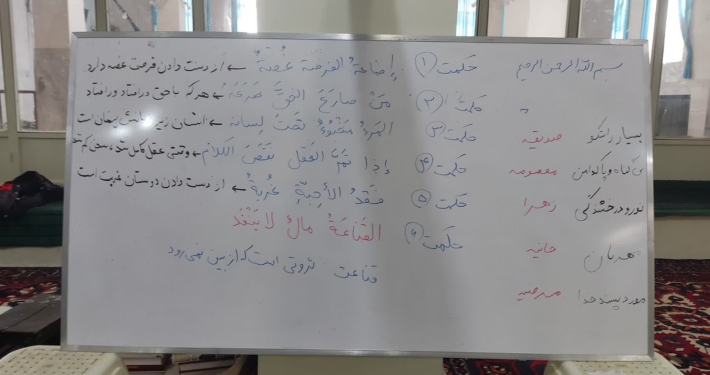 بسم الله الرحمن الرحیم
حکمت ۱ إضاعةُ الفُرصَة غُصَّةٌ ← از دست دادن فرصت غصه دارد
حکمت ۲ مَنْ صارَعَ الحَقَّ صَرَعَهُ ← هر که با حق درافتاد ورافتاد
حکمت ۳ المَرءُ مَخبُوءٌ تَحتَ لِسانه ← انسان زیر زبانش پنهان است
حکمت ۴ إذا تَمَّ العَقل نَقَصَ الکلام ← وقتی عقل کامل شد، سخن کم شد
حکمت ۵ فَقدُ الأحِبَّةِ غُربةٌ ← از دست دادن دوستان غربت است
حکمت ۶ القَناعَةُ مالٌ لا یَنْفَد
قناعت ثروتی است که از بین نمی رود
بسیار راستگو صدیقه
بی گناه و پاکدامن معصومه
نور و درخشندگی زهرا
مهربان حانیه
مورد پسند خدا مرضیه